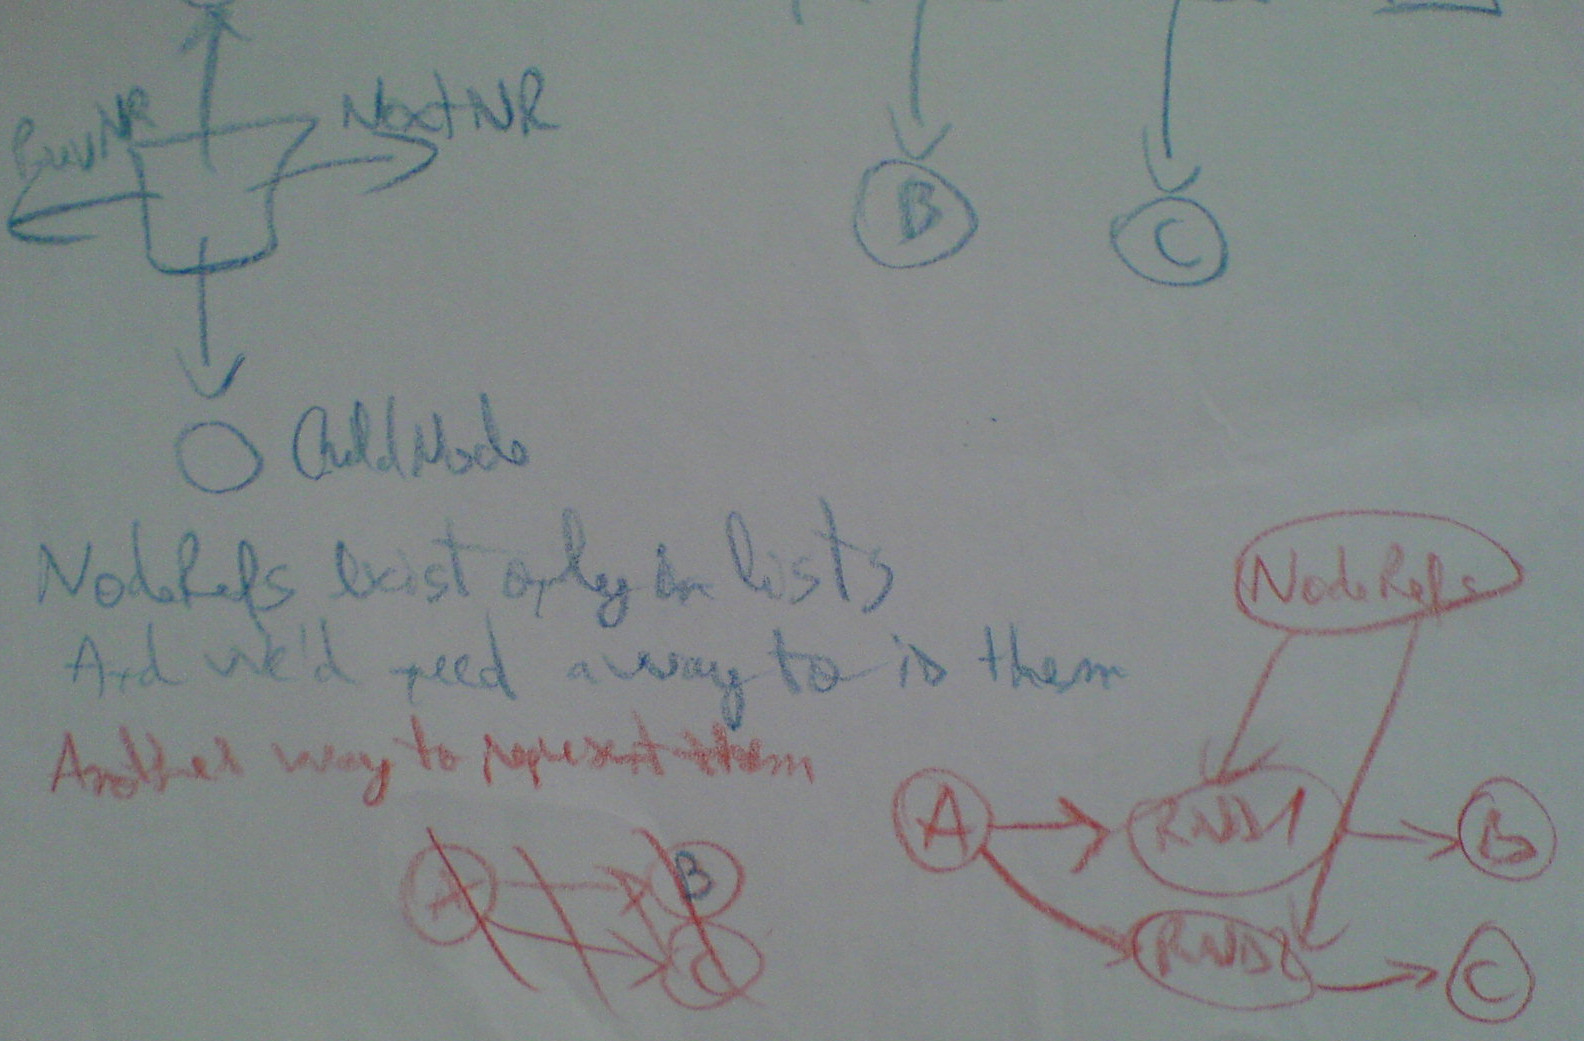 PrevNR NextNR
B
C
ChildNode
NodeRefs exist only in lists
And we'd need a way to is them
NodeRefs
Another way to represent them
A B
C
A RND1 B
RND2 C